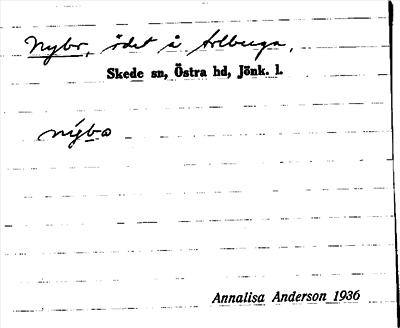 Nybo, ödet å Arlberga,
Skede sn, Östra hd, Jönk. l.
nýbo
Annalisa Anderson 1936